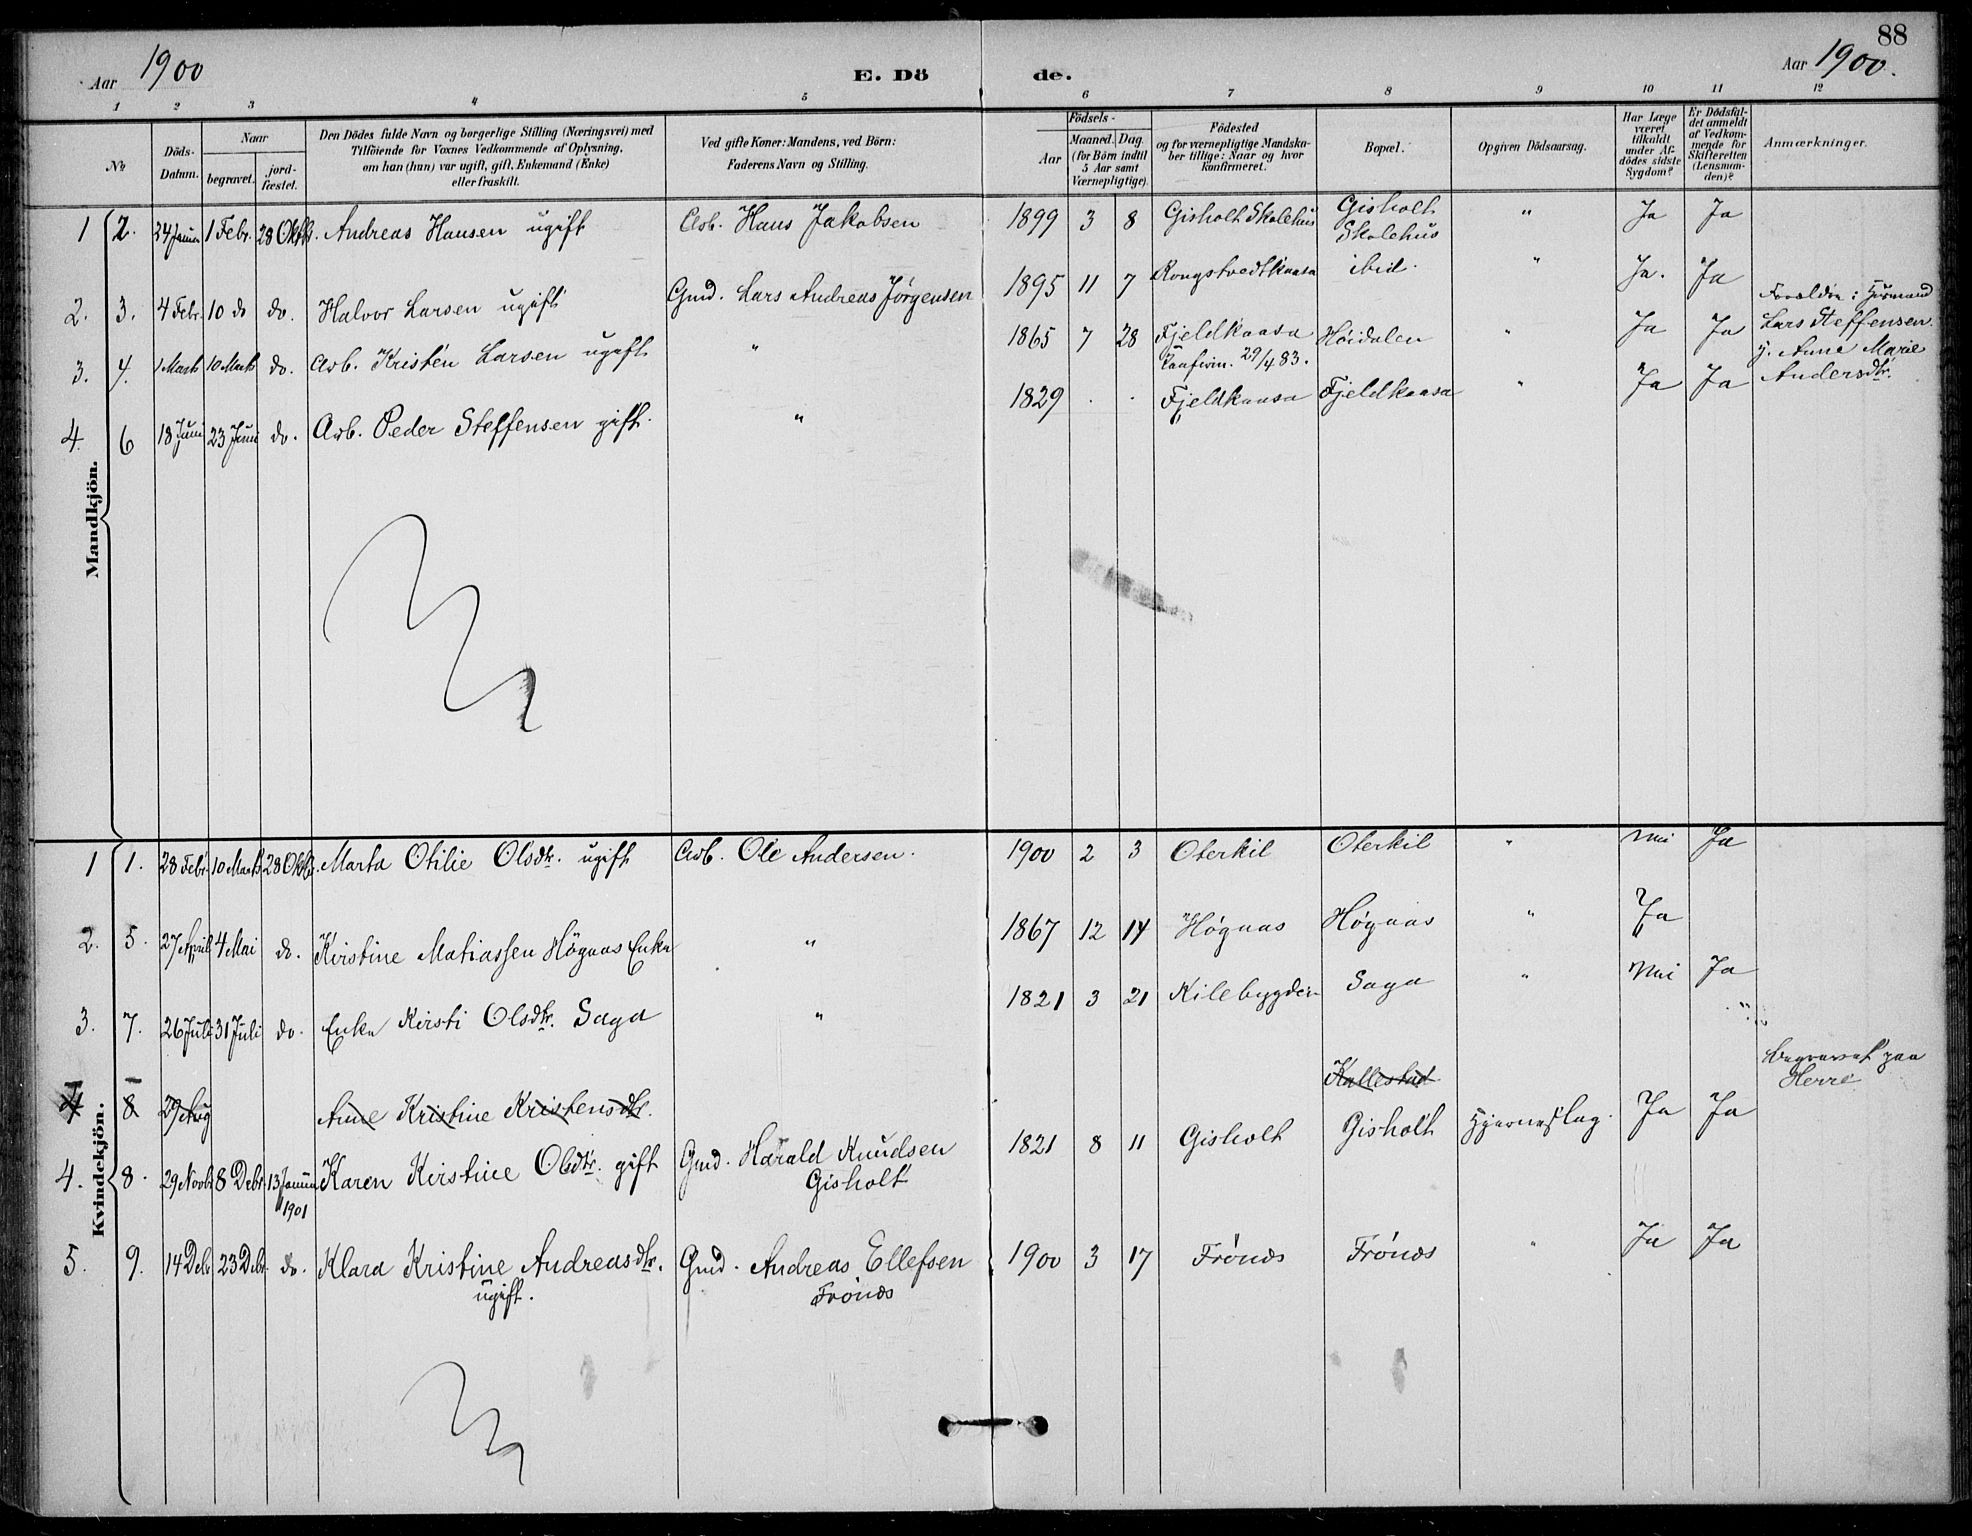 88
Aar 1900
E. Dö de.
Aar 1900.
1 2 3 4 5 6 7 8 9 10 11 12
No.
Döds-
Datum.
Naar
begravet.
jord-
fæstet.
Den Dödes fulde Navn og borgerlige Stilling (Næringsvei) med
Tilföiende for Voxnes Vedkommende af Oplysning,
om han (hun) var ugift, gift, Enkemand (Enke)
eller fraskilt.
Ved gifte Koner: Mandens, ved Börn:
Faderens Navn og Stilling.
Födsels-
Aar
Maaned. Dag.
(for Börn indtil
5 Aar samt
Værnepligtige).
Födested
og for værnepligtige Mandska-
ber tillige: Naar og hvor
konfirmeret.
Bopæl.
Opgiven Dödsaarsag.
Har Læge
været
tilkaldt
under Af-
dödes sidste
Sygdom?
Er Dödsfal-
det anmeldt
af Vedkom-
mende for
Skifteretten
(Lensman-
den)?
Anmærkninger.
Mandkjön.
1 2. 24 Januar 1 Febr. 28 Oktbr. Andreas Hansen ugift Arb. Hans Jakobsen 1899 3 8 Gisholt Skolehus Gisholt Skolehus " Ja Ja
2. 3. 4 Febr. 10 do do. Halvor Larsen ugift Gmd. Lars Andreas Jörgensen 1895 11 7 Rongstvedtkaasa ibid. " Ja. Ja
3. 4. 1 Marts 10 Marts do. Arb. Kristen Larsen ugift " 1865 7 28 Fjeldkaasa Høidalen " Ja Ja
Konfirm. 29/4 83.
Forældre: Husmand
Lars Steffensen
g. Anne Marie
Andersdtr.
4. 6 18 Juni 23 Juni do. Arb. Peder Steffensen gift. " 1829 . . Fjeldkaasa Fjeldkaasa " Ja Ja
Kvindekjön.
1 1. 28 Febr. 10 Marts 28 Oktbr. Marta Otilie Olsdtr. ugift Arb. Ole Andersen. 1900 2 3 Oterkil Oterkil " Nei Ja
2. 5. 27 April 4 Mai do. Kirstine Matiassen Høgnas Enke " 1867 12 14 Høgnas Høgnas " Ja
3. 7. 26 Juli 31 Juli do. Enke Kirsti Olsdtr. Saga " 1821 3 21 Kilebygden Saga " Nei Ja
4 8 29 Aug Anne Kristine Kristensdtr. Kallestad
Begravet paa
Herre
4. 8. 29 Novbr 8 Debr 13 Januar 1901 Karen Kirstine Olsdtr. gift Gmd. Harald Knudsen Gisholt 1821 8 11 Gisholt Gisholt Hjerneslag. Ja Ja
5. 9. 14 Debr 23 Debr. do. Klara Kristine Andreasdtr. ugift. Gmd. Andreas Ellefsen Frönæs 1900 3 17 Frönæs Frönæs " Ja Ja